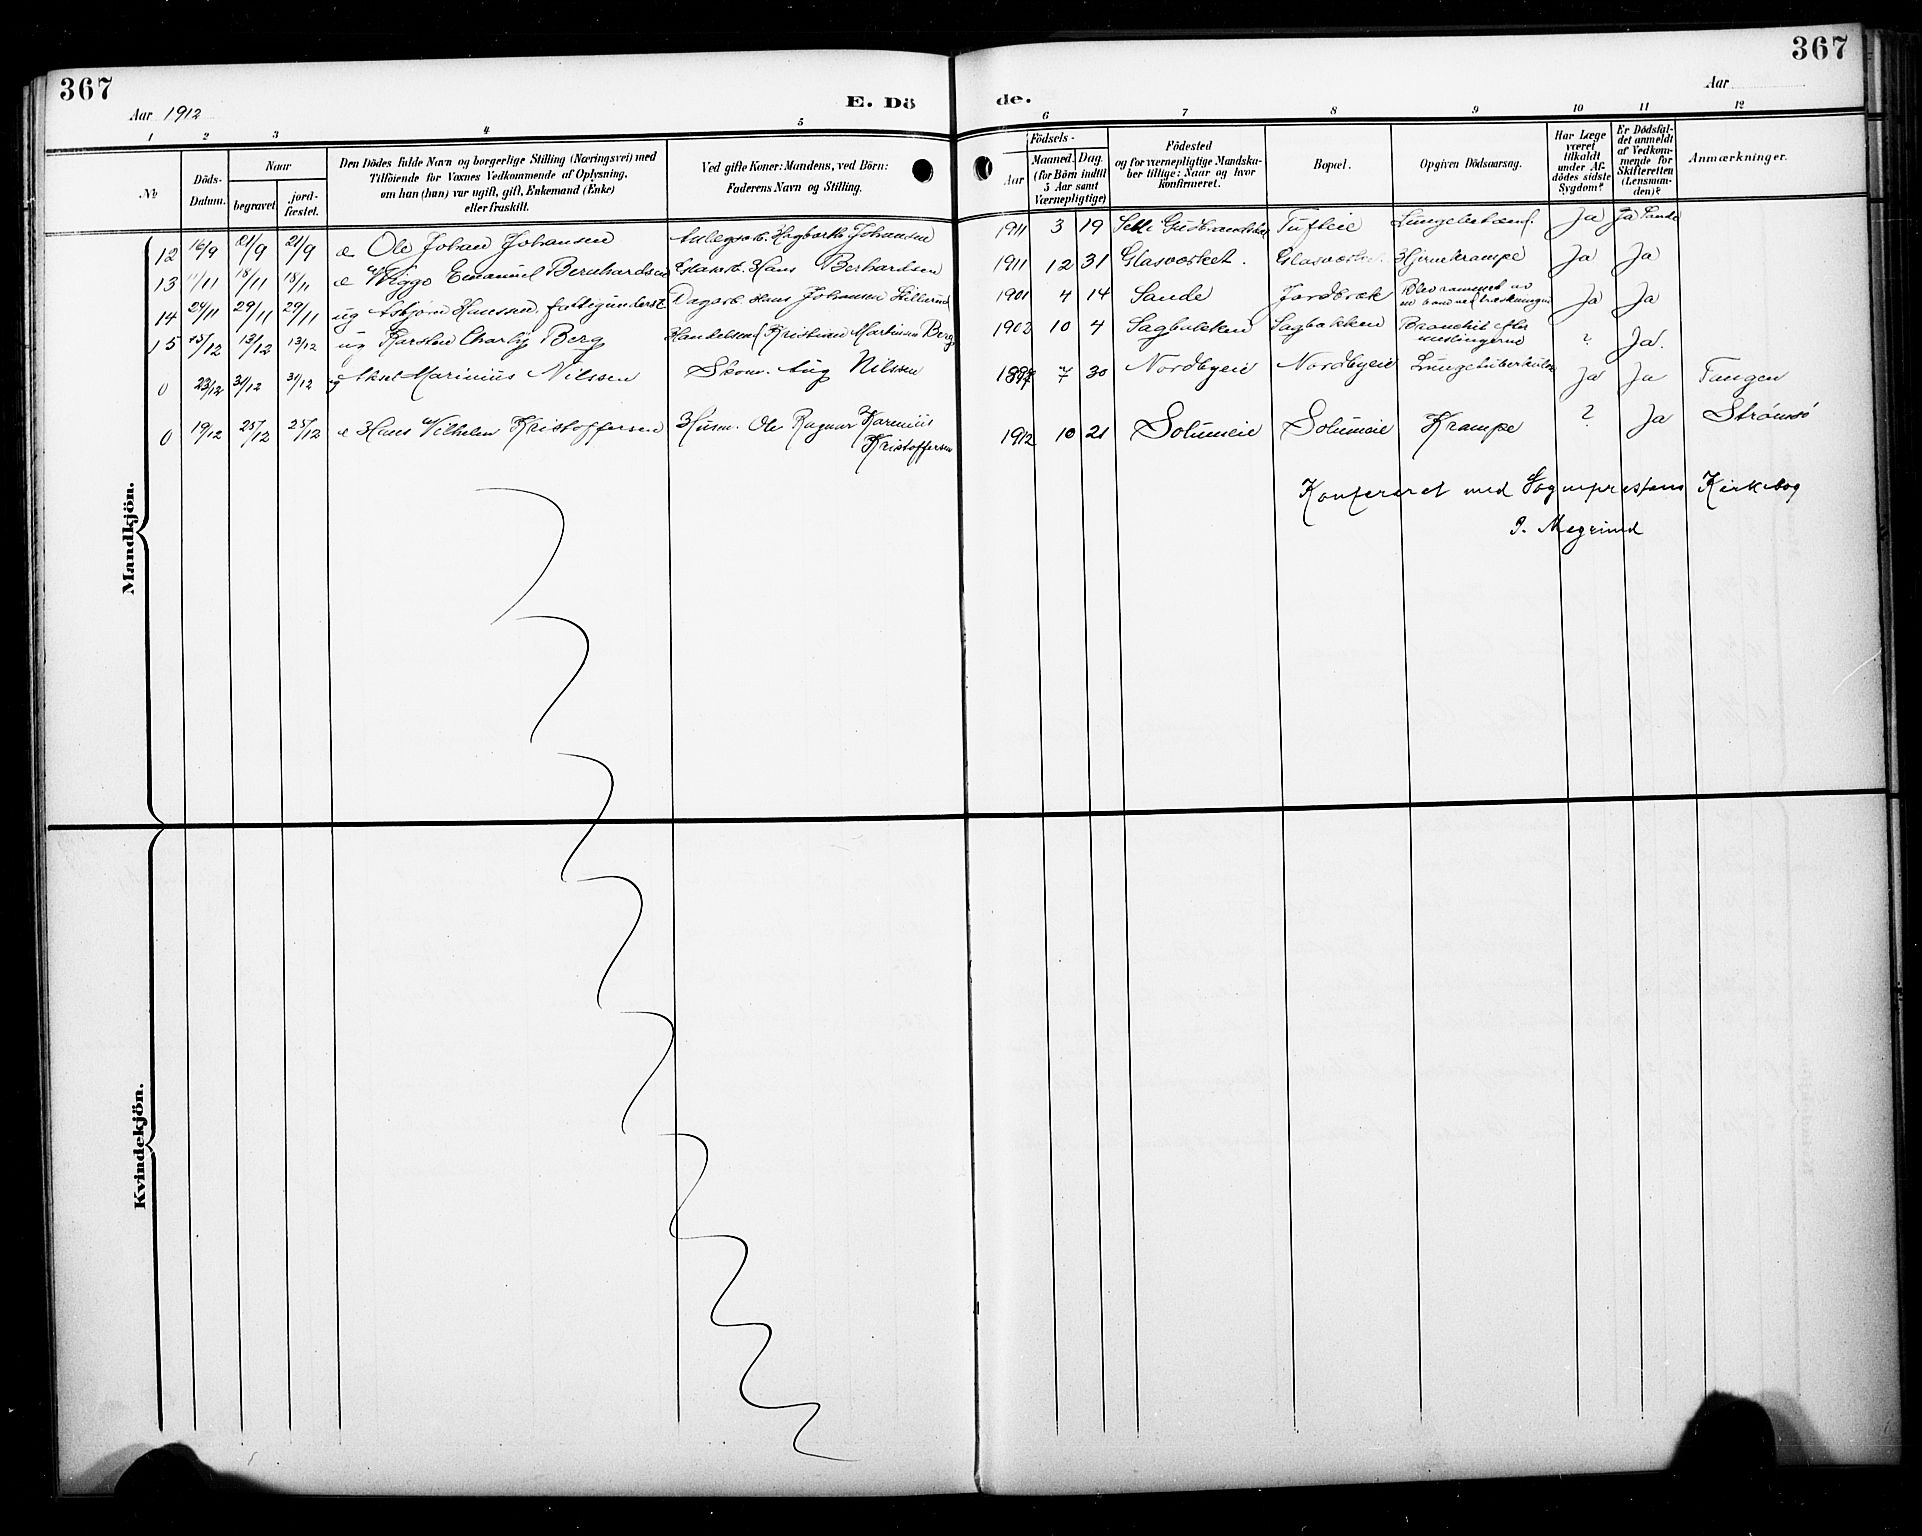 367
367
Aar 1912
E. Dö
de.
Aar
1 2 3 4 5 6 7 8 9 10 11 12
№
Döds-
Datum.
Naar
begravet.
jord-
fæstet.
Den Dödes fulde Navn og borgerlige Stilling (Næringsvei) med
Tilföiende for Voxnes Vedkommende af Oplysning,
om han (hun) var ugift, gift, Enkemand (Enke)
eller fraskilt.
Ved gifte Koner: Mandens, ved Börn:
Faderens Navn og Stilling.
Födsels-
Aar
Maaned. Dag.
(for Börn indtil
5 Aar samt
Værnepligtige)
Födested
og for værnepligtige Mandska-
ber tillige: Naar og hvor
konfirmeret.
Bopæl.
Opgiven Dödsaarsag.
Har Læge
været
tilkaldt
under Af-
dödes sidste
Sygdom?
Er Dödsfal-
det anmeldt
af Vedkom-
mende for
Skifteretten
(Lensman-
den)?
Anmærkninger.
Mandkjön.
12 16/9 21/9 21/9 e Ole Johan Johansen Anlægsarb. Hagbarth Johansen 1911 3 19 Gudbrandsdal Tufteie Lungebetænd. Ja Ja Sande
13 11/11 18/11 18/11 e Wiggo Emanuel Bernhardsen Glasarb. Hans Berhardsen 1911 12 31 Glasværket. Glasværket. Hjernekrampe Ja Ja
14 24/11 29/11 29/11 ug Asbjørn Hanssen fattigunderst. Dagarb. Hans Johansen Lillerud 1901 4 14 Sande Jordbræk Blev rammet av en ved træskningen Ja Ja
15 13/12 13/12 ug Karsten Charly Berg Handelsm. Kristian Martinsen Berg 1902 10 4 Sagbakken Sagbakken Bronchit efter meslingerne ? Ja.
0 23/12 31/12 31/12 ug Aksel Marinius Nilssen Skom. Aug Nilssen 7 30 Nordbyeie Nordbyeie Lungetuberkulose Ja Ja Tangen
0 19/12 25/12 25/12 e Hans Vilhelm Kristoffersen Husm. Ole Ragnar Karenius Kristoffersen 1912 10 21 Solumeie Solumeie Krampe ? Ja Strømsø
Konfereret med Sogneprestens Kirkebog
Kvindekjön.